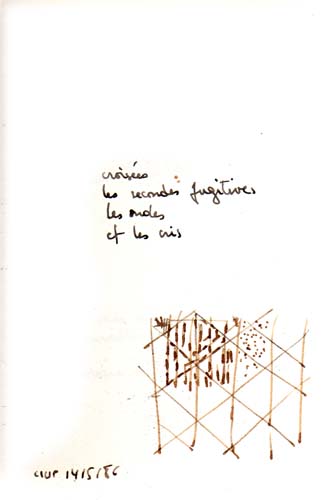 croisées
les secondes fugitives
les ondes
et les cris
CIUP 14/5/86